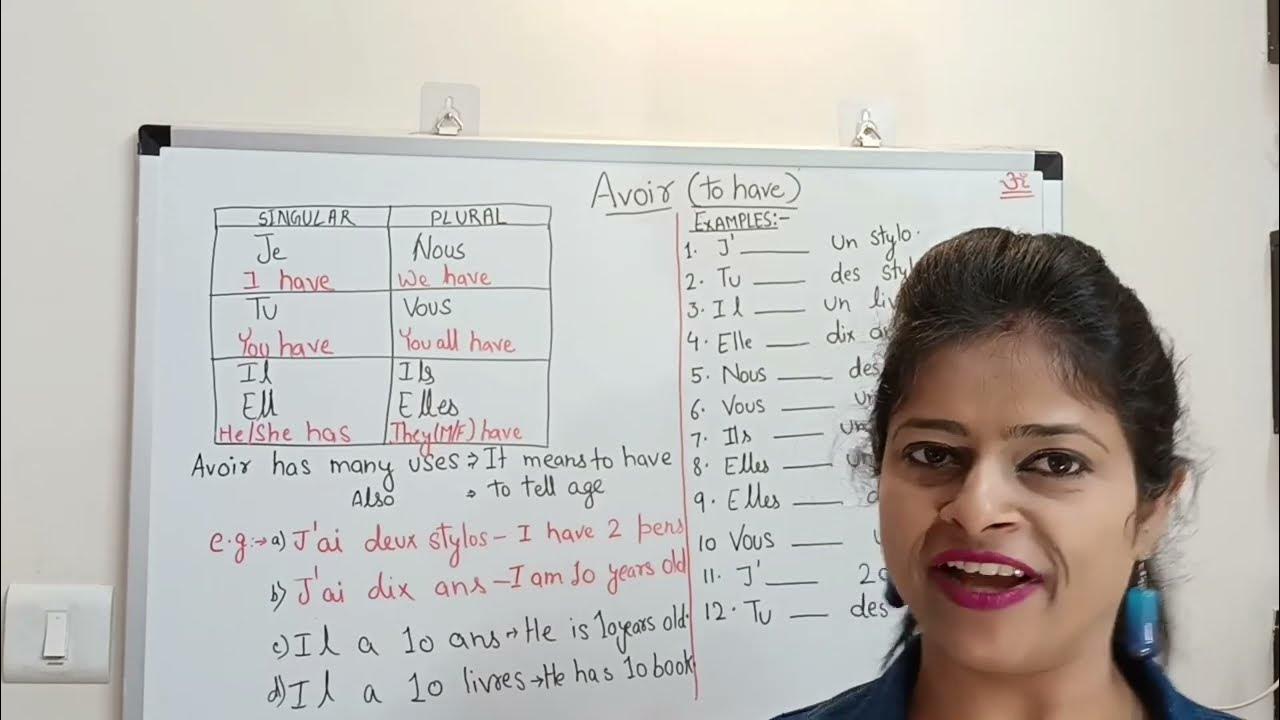 Avoir (to have)
ॐ
SINGULAR PLURAL
Je Nous
I have We have
Tu Vous
You have You all have
Il Ils
Ell Elles
He/She has They(M/F) have
Avoir has many uses → It means to have
Also → to tell age
e.g:→ a) J'ai deux stylos - I have 2 pens
b) J'ai dix ans - I am 10 years old
c) Il a 10 ans → He is 10 years old.
d) Il a 10 livres → He has 10 book
EXAMPLES:-
1. J' ____ un stylo.
2. Tu ____ des
3. Il ____ un
4. Elle ____ dix
5. Nous ____ des
6. Vous ____
7. Ils ____
8. Elles ____
9. Elles ____
10 Vous ____
11. J' ____
12. Tu ____ des